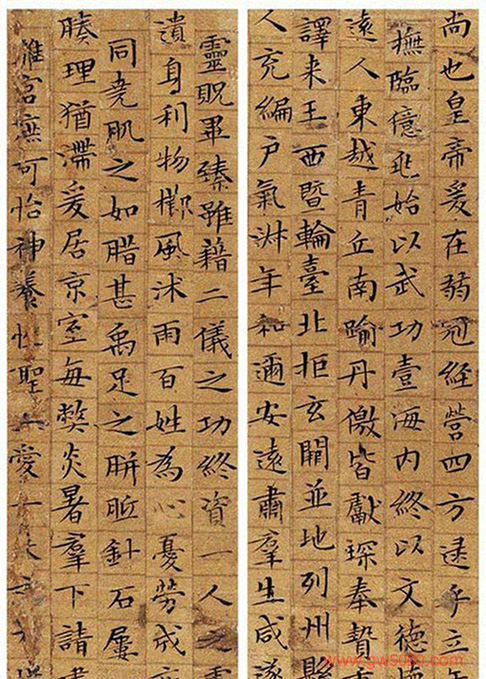 尚也皇帝爰在弱冠經營四方逮乎立年
撫臨億兆始以武功壹海内終以文德
遠人東越青丘南踰丹儌皆獻琛奉贄重
譯来王西暨輪臺北拒玄闕並地列州縣
人充編户氣淋年和邇安遠肅羣生咸遂
靈貺畢臻雖藉二儀之功終資一人之
遺身利物櫛風沐雨百姓為心憂勞成疾
同堯肌之如腊甚禹足之胼胝針石屢
腠理猶滯爰居京室每弊炎暑羣下請建
離宮庶可怡神養性聖上愛一夫之